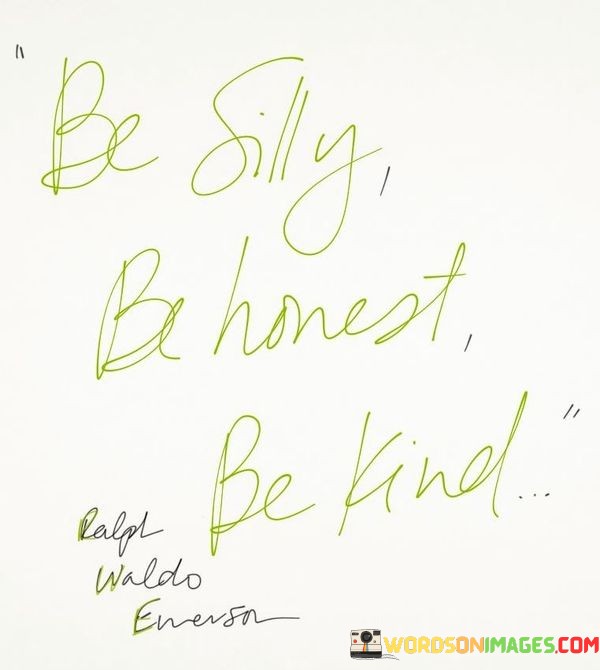 "Be Silly,
Be honest,
Be Kind..."
Ralph
Waldo
Emerson
WORDSONIMAGES.COM